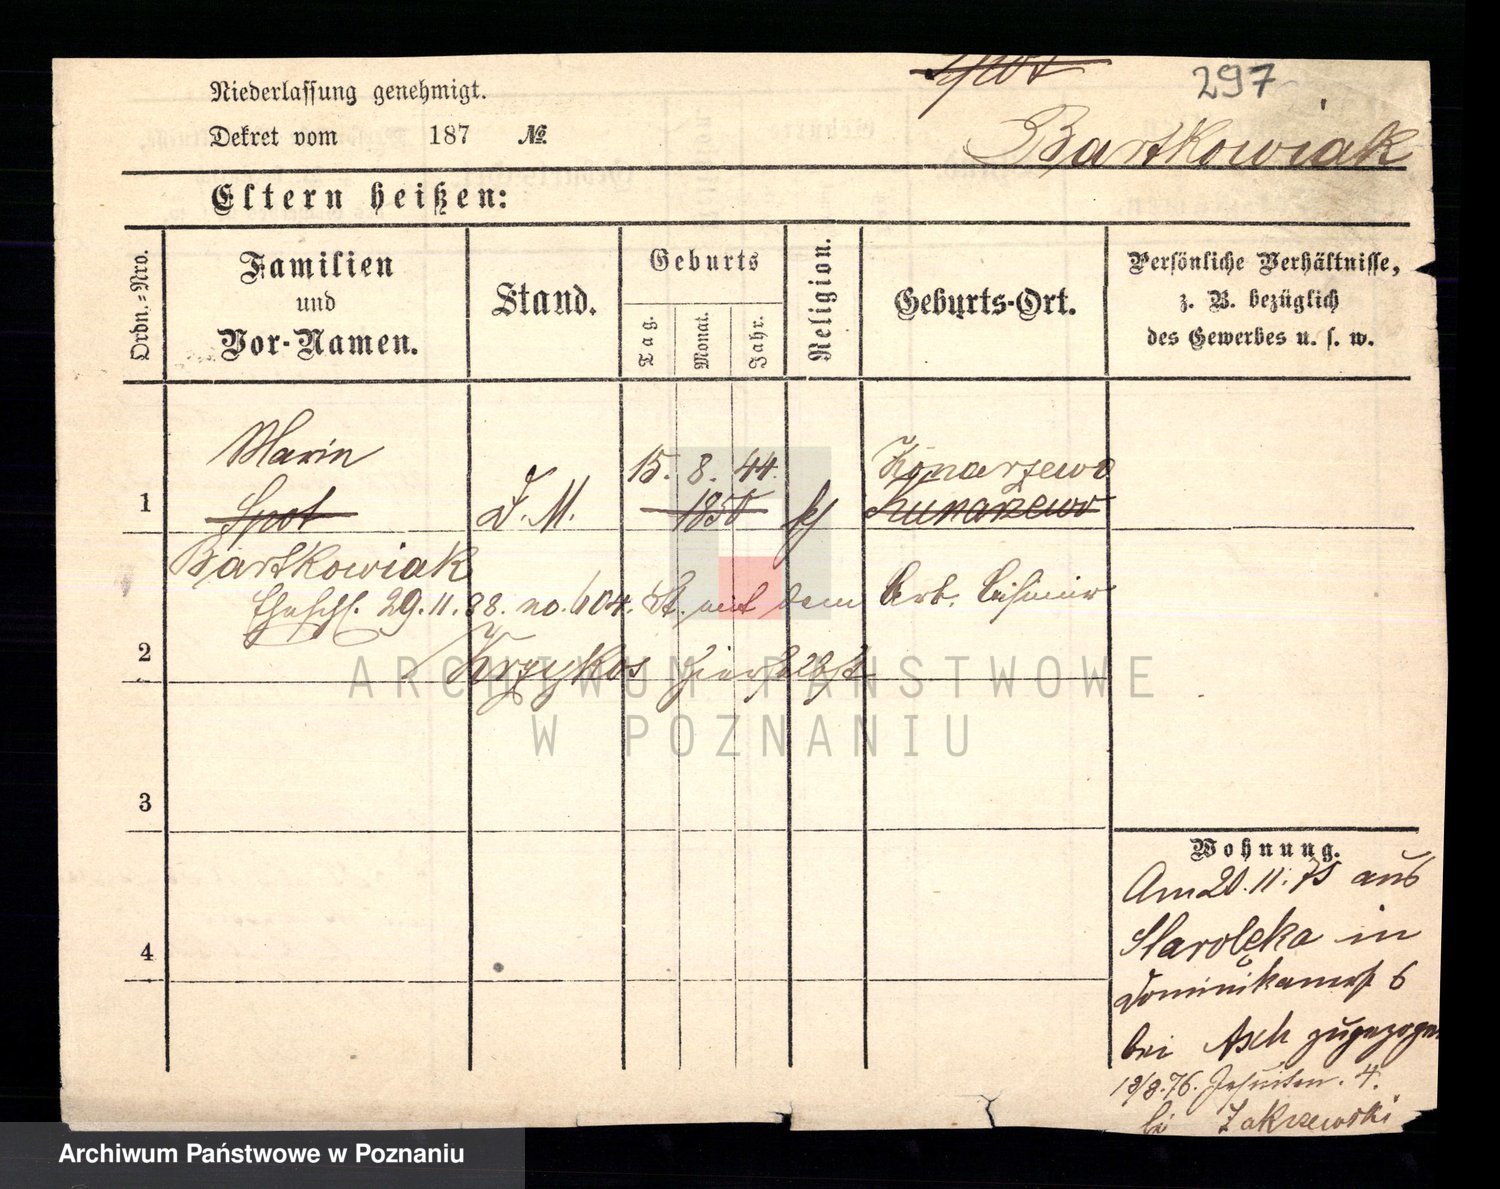 Niederlassung genehmigt.
Dekret vom 187 №
Spot
297
Bartkowiak
Eltern heißen:
Ordn.=Nro.
Familien
und
Vor-Namen.
Stand.
Geburts
Tag.
Monat.
Jahr.
Religion.
Geburts-Ort.
Persönliche Verhältnisse,
z. B. bezüglich
des Gewerbes u. s. w.
Marin
15. 8. 44.
Konarzewo
1
Spot
D. M.
1850
k
Kunarzewo
Bartkowiak
29. 11. 88. no. 604. St. mit dem Arb. Casimir
2
Krzykos
3
Wohnung.
Am 20. 11. 75 aus
Starolęka in
4
Dominikanerst 6
bei Asch zugezogen
18/8. 76. Jesuiten. 4.
bei Zakrzewski
ARCHIWUM PAŃSTWOWE
W POZNANIU
Archiwum Państwowe w Poznaniu